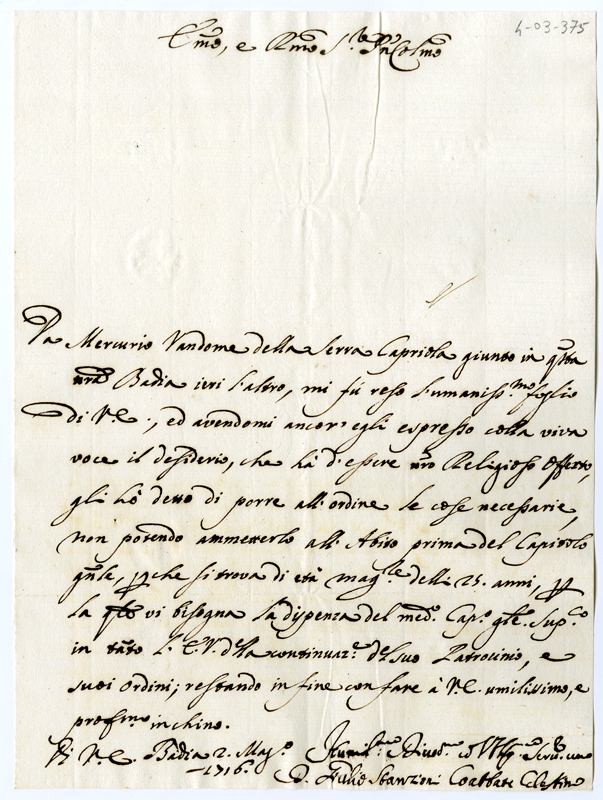 4-03-375
Emo, e Rmo Sre Pne Colmo
Da Mercurio Vandome della Serra Capriola giunto in qsta
nra Badia ieri l'altro, mi fù reso l'umaniss.mo foglio
di V.E., ed avendomi ancor' egli espresso colla viva
voce il desiderio, che hà d'essere nro Religioso Offerto,
gli hò detto di porre all'ordine le cose necessarie,
non potendo ammetterlo all'Abito prima del Capitolo
gnle, pche si trova di età mag.re delli 25. anni, p
la qle vi bisogna la dispenza del med.o Cap.o gle. Sup.co
in tāto l'E.V. della continuaz.e del suo Patrocinio, e
suoi ordini; restando in fine con fare à V.E. umilissimo, e
profmo inchino.
Di V.E. Badia 2. Mag.o Humil.mo Divot.mo ed Obblig.mo Serv.
1716. D. Coabbate Celestino